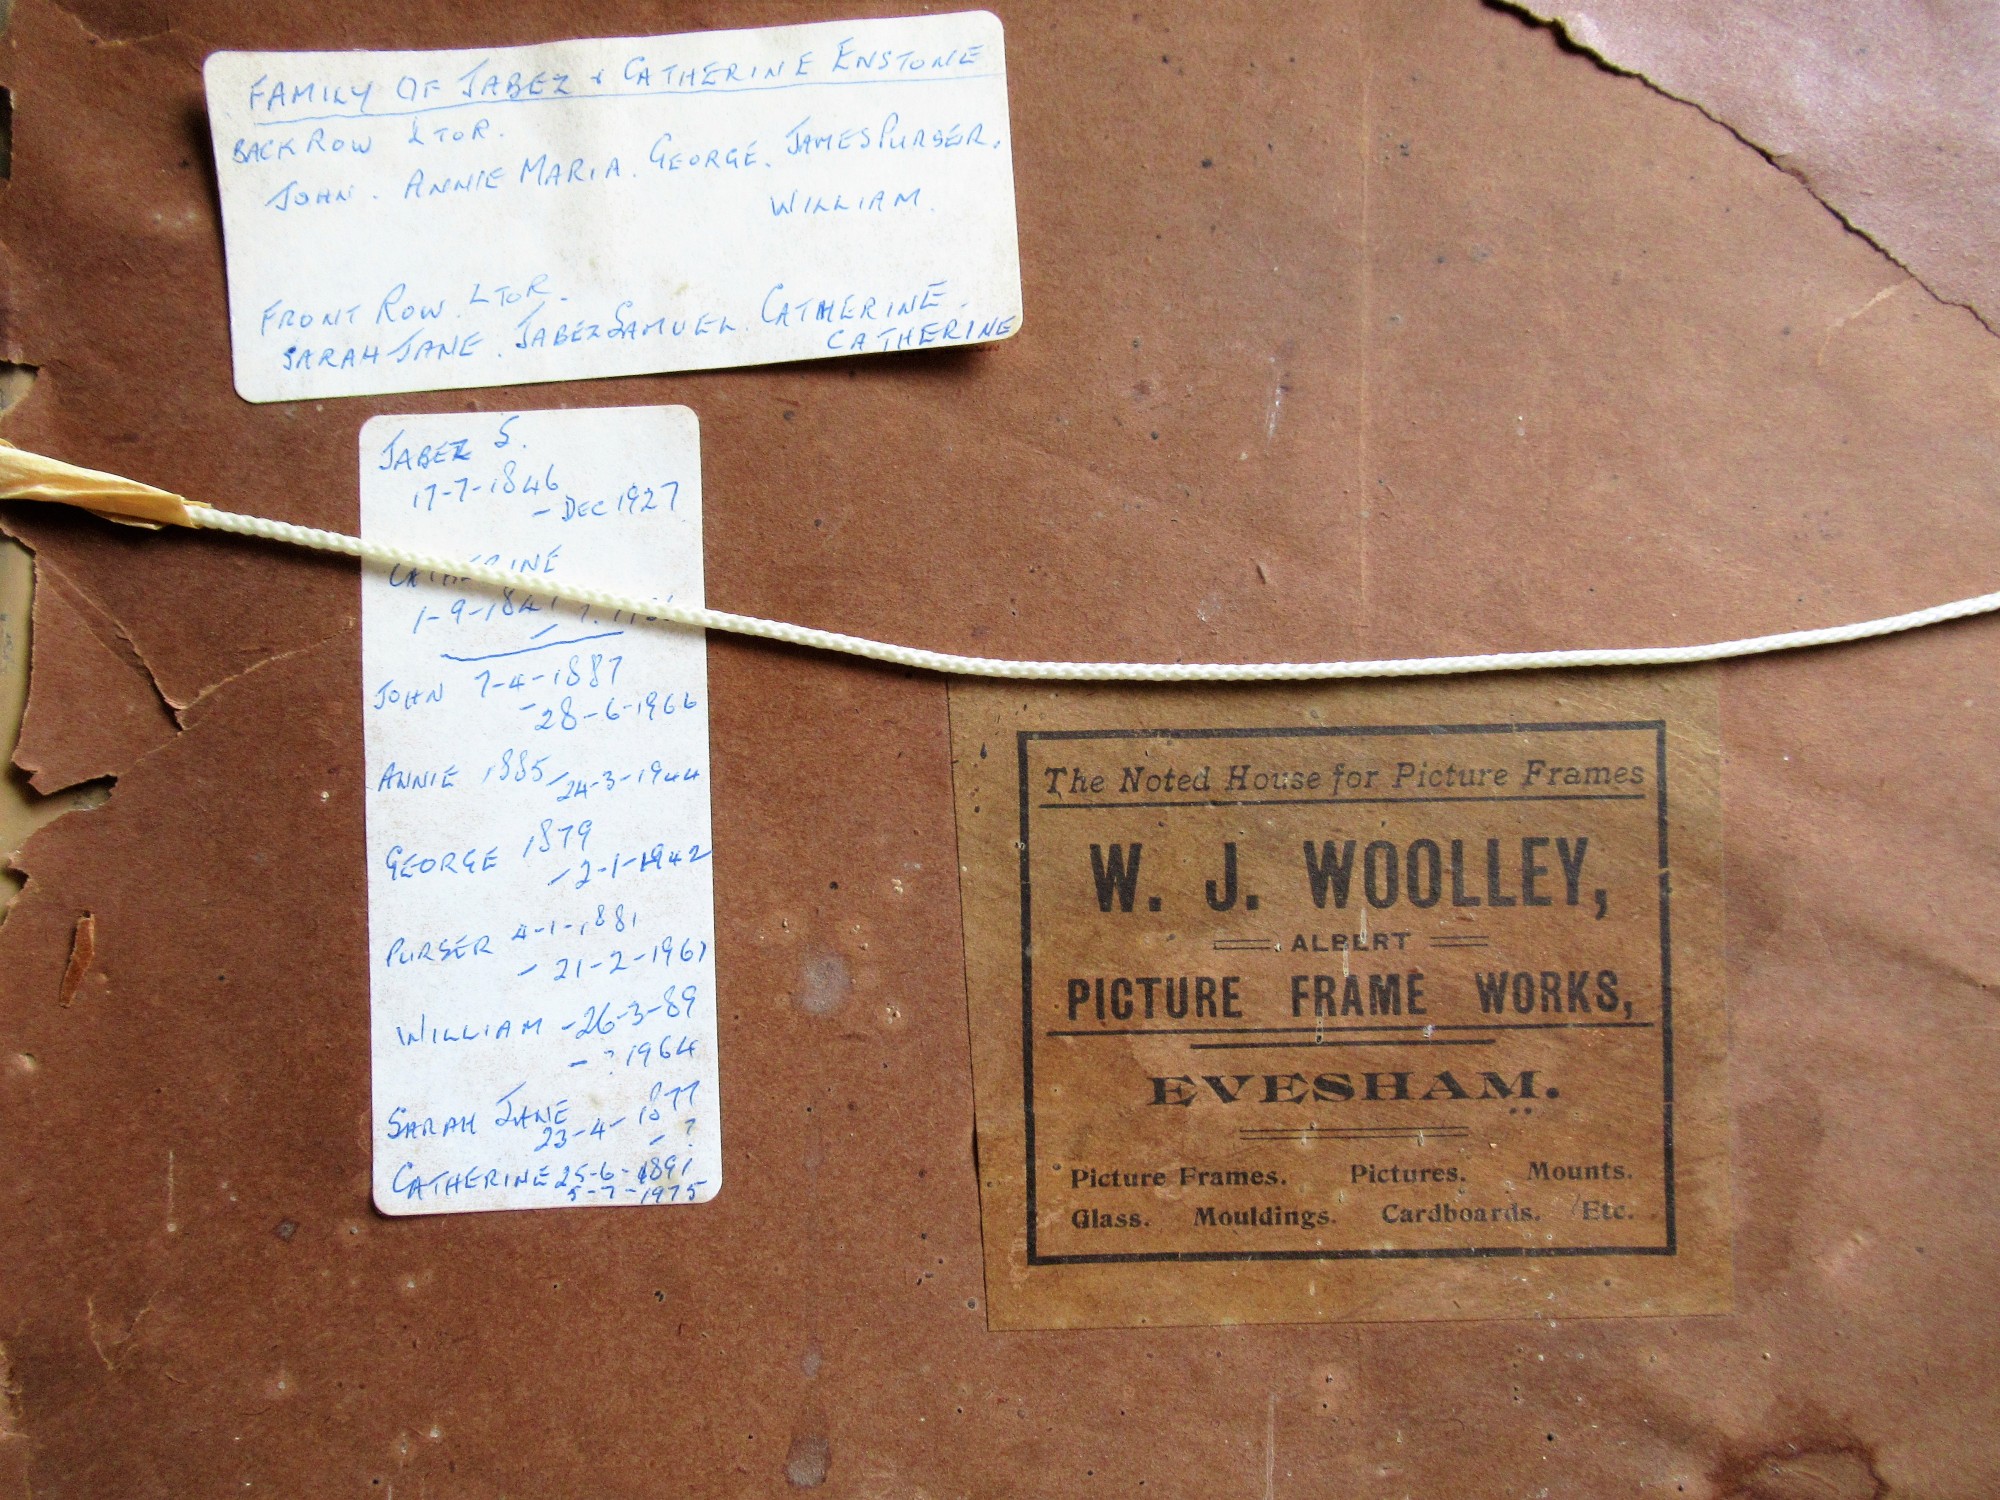 FAMILY OF JABEZ & CATHERINE ENSTONE
BACK ROW L TO R.
JOHN. ANNIE MARIA. GEORGE. JAMES PURSER.
WILLIAM.
FRONT ROW L TO R.
SARAH JANE. JABEZ SAMUEL. CATHERINE.
CATHERINE
JABEZ S.
17-7-1846
- DEC 1927
CATHERINE
1-9-184
JOHN 7-4-1887
- 28-6-1966
ANNIE 1885
- 24-3-1944
GEORGE 1879
- 2-1-1942
PURSER 4-1-1881
- 21-2-1961
WILLIAM - 26-3-89
- ? 1964
SARAH JANE
23-4-1877
- ?
CATHERINE 25-6-1891
5-7-1975
The Noted House for Picture Frames
W. J. WOOLLEY,
ALBERT
PICTURE FRAME WORKS,
EVESHAM.
Picture Frames. Pictures. Mounts.
Glass. Mouldings. Cardboards. Etc.